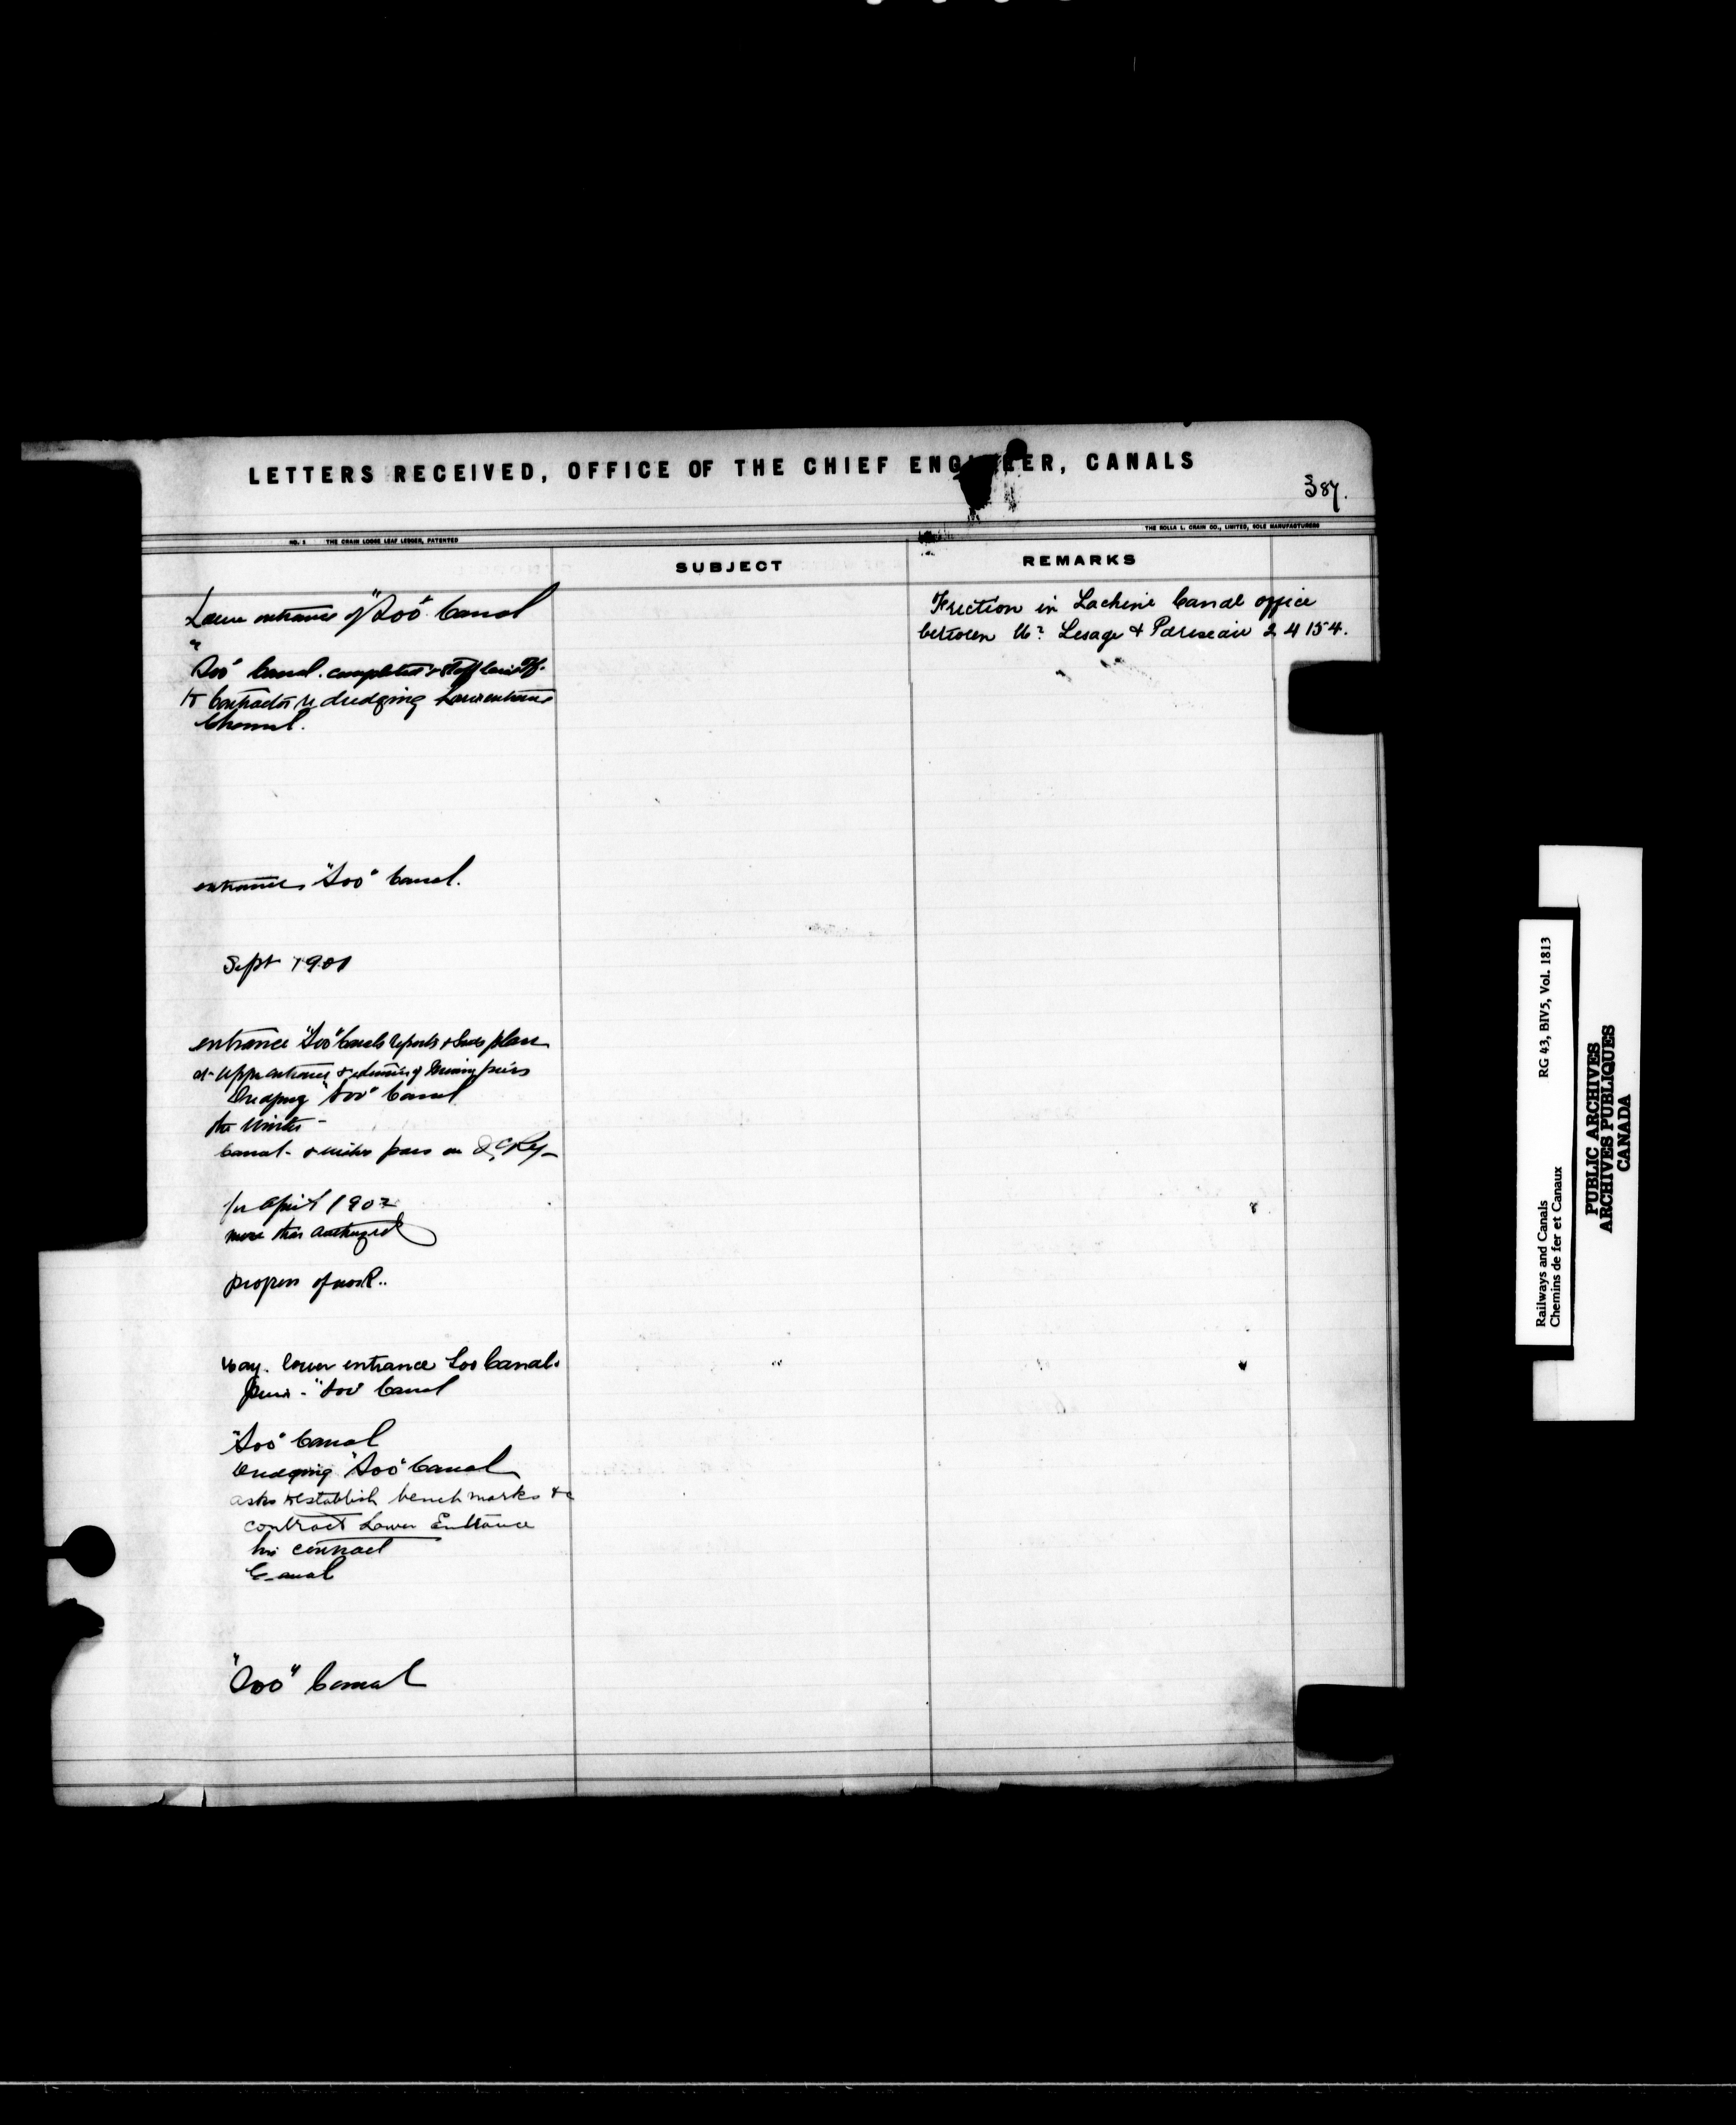 LETTERS RECEIVED, OFFICE OF THE CHIEF ENGINEER, CANALS
387.
THE ROLLA L. CRAIN CO., LIMITED, SOLE MANUFACTURERS
NO. 1 THE CRAIN LOOSE LEAF LEDGER, PATENTED
SUBJECT
REMARKS
Lower entrance of "Soo" Canal
"
Soo" Canal. completed & staff laid off.
to Contractor re dredging Lower entrance
Channel.
Friction in Lachine Canal office
between Lesage & Pariseau 24154.
entrances "Soo" Canal.
Sept 1901
entrance "Soo" Canal reports & sends plan
at upper entrance & piers
Dredging "Soo" Canal
the winter -
Canal - & wishes pass on Ry -
for April 1902
more than authorized
progress of work..
way. lower entrance Soo Canal.
piers - "Soo" Canal
"Soo" Canal
Dredging "Soo" Canal
asks to establish bench marks &c
contract Lower Entrance
his contract
Canal
"Soo" Canal
Railways and Canals
Chemins de fer et Canaux
RG 43, BIV5, Vol. 1813
PUBLIC ARCHIVES
ARCHIVES PUBLIQUES
CANADA